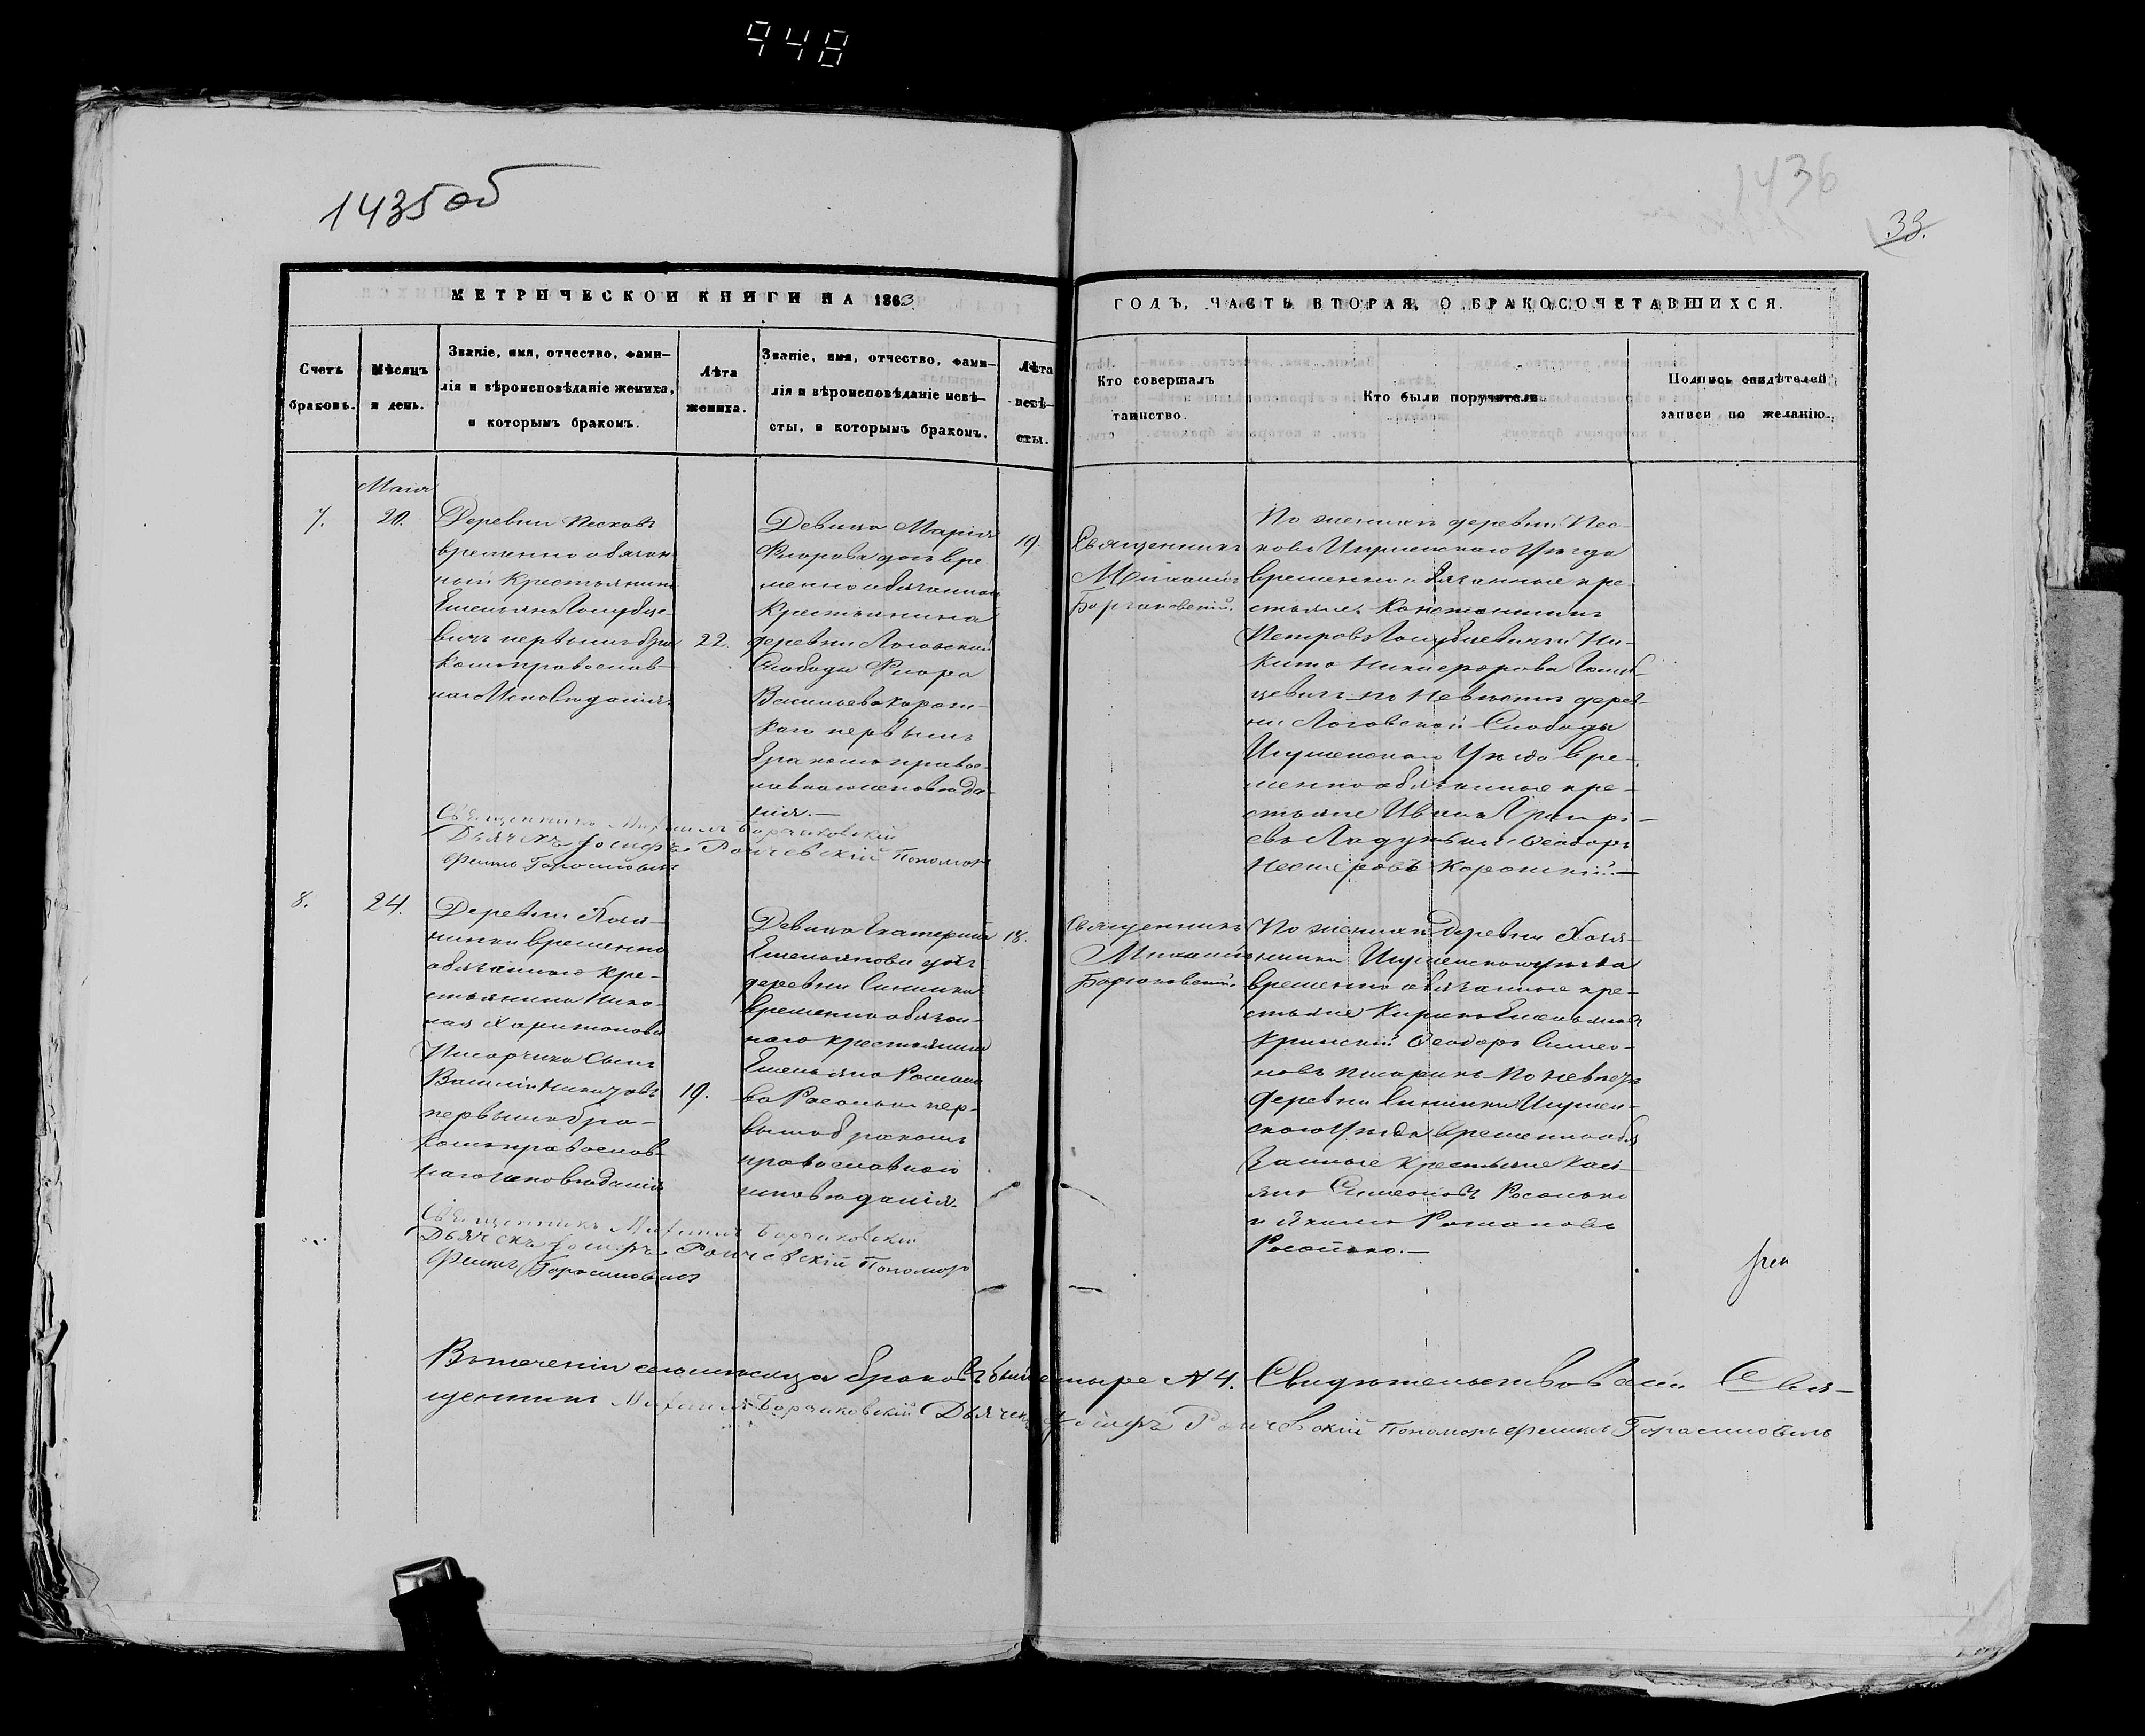 948
1435 об
1436
33.
МЕТРИЧЕСКОЙ КНИГИ НА 1863
ГОДЪ, ЧАСТЬ ВТОРАЯ, О БРАКОСОЧЕТАВШИХСЯ.
Счетъ
браковъ.
Мѣсяцъ
и день.
Званіе, имя, отчество, фами-
лія и вѣроисповѣданіе жениха,
и которымъ бракомъ.
Лѣта
жениха.
Званіе, имя, отчество, фами-
лія и вѣроисповѣданіе невѣ-
сты, и которымъ бракомъ.
Лѣта
невѣ-
сты.
Кто совершалъ
таинство.
Кто были поручители.
Подпись свидѣтелей
записи по желанію.
7.
Маія
20.
Деревни Песковъ
временно обязан
ный Крестьянинъ
Емельянъ Голубце-
вичъ первымъ бра
комъ православ-
наго Исповѣданія.
22.
Девица Марія
Флорова дочь вре
менно обязанного
Крестьянина
деревни Логовской
Слободы Флора
Васильева Корот-
каго первымъ
бракомъ правос-
лавнаго исповѣда-
нія.—
19.
Священникъ
Михаилъ
Борзаковскій.
По женихѣ деревни Пес-
ковъ Игуменскаго Уѣзда
временно обязанные кре-
стьяне Константинъ
Петровъ Голубцевичъ и Ни-
кита Никифоровъ Голуб-
цевичъ по Невѣстѣ дерев-
ни Логовской Слободы
Игуменскаго Уѣзда вре-
менно обязанные кре-
стьяне Иванъ Григорь-
евъ и Ѳеодоръ
Нестеровъ Короткій.—
Священникъ Михаилъ Борзаковскій
Дьячекъ Іосифъ Пономарь
8.
24.
Деревни
временно
обязаннаго Кре-
стьянина Нико-
лая Харитонова
Писарчика Сынъ
Василій
первымъ бра-
комъ православ-
наго исповѣданія
19.
Девица Екатерина
Емельянова дочь
деревни Синички
временно обязан-
наго крестьянина
Емельяна Романо
ва пер-
вымъ бракомъ
православнаго
исповѣданія.
18.
Священникъ
Михаилъ
Борзаковскій
По женихѣ Деревни
Игуменскаго уѣзда
временно обязанные кре-
стьяне Емельяновъ
Ѳеодоръ Симео-
новъ По невѣстѣ
деревни Синички Игумен-
скаго Уѣзда временно обя
занные Крестьяне Кась-
янъ Симеоновъ
и Романовъ
Священникъ Михаилъ Борзаковскій
Дьячекъ Іосифъ Пономарь
Въ теченіи сего мѣсяца браковъ было четыре № 4. Свидѣтельствовали Свя-
щенникъ Михаилъ Борзаковскій Дьячекъ Іосифъ Пономарь